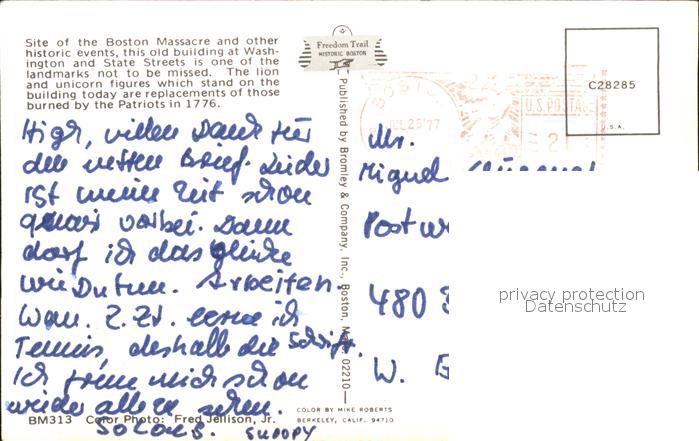 Site of the Boston Massacre and other
historic events, this old building at Wash-
ington and State Streets is one of the
landmarks not to be missed. The lion
and unicorn figures which stand on the
building today are replacements of those
burned by the Patriots in 1776.
Freedom Trail
HISTORIC BOSTON
BOSTON
JUL 25'77
U.S. POSTAGE
2
C28285
U.S.A.
Published by Bromley & Company, Inc., Boston, Mass. 02210—
High, vielen Dank für
den netten Brief. Leider
ist meine Zeit schon
vorbei. Dann
darf ich das gleiche
wie Du tun. Arbeiten.
Wau. Z.Zt. lerne ich
Tennis, deshalb die Schrift.
Ich freue mich schon
wieder alle zu sehen.
SNOOPY
Mr.
Miguel
Post
480
W. G
privacy protection
Datenschutz
BM313 Color Photo: Fred Jellison, Jr.
COLOR BY MIKE ROBERTS
BERKELEY, CALIF. 94710